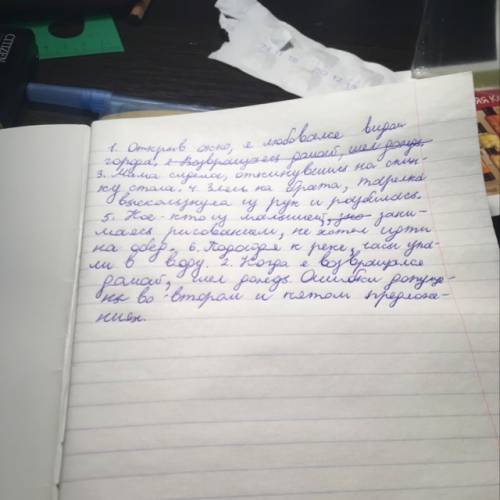 1. Открыв окно, я любовался видом
города. 2. Возвращаясь домой, шел дождь.
3. Мама сидела, откинувшись на спин-
ку стула. 4. Злясь на брата, тарелка
выскользнула из рук и разбилась.
5. Кое-кто из малышей, зани-
маясь рисованием, не хотел идти
на обед. 6. Подходя к реке, часы упа-
ли в воду. 2. Когда я возвращался
домой, шел дождь. Ошибки допуще-
ны во втором и пятом предложе-
ниях.
CITIZEN